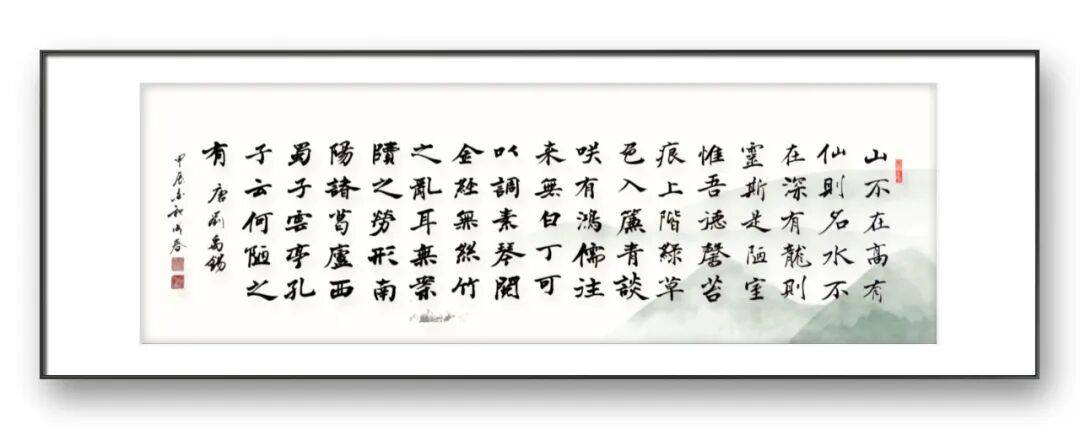 山不在高有
仙則名水不
在深有龍則
靈斯是陋室
惟吾德馨苔
痕上階綠草
色入簾青談
咲有鴻儒往
来無白丁可
以調素琴閱
金經無絲竹
之亂耳無案
牘之勞形南
陽諸葛廬西
蜀子雲亭孔
子云何陋之
有 唐劉禹錫
甲辰金秋